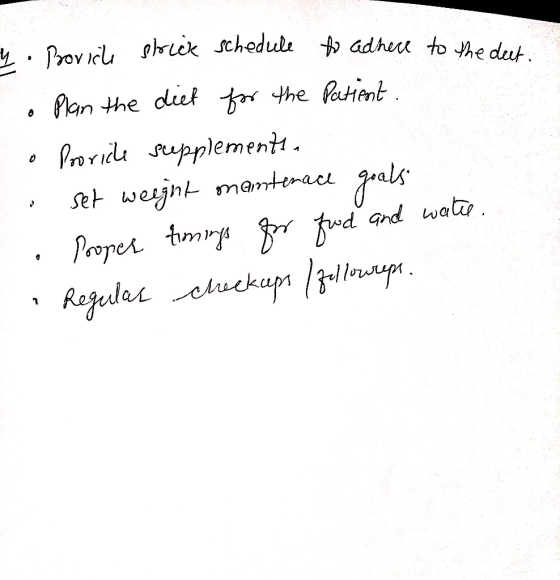 4 • Provide strick schedule to adhere to the diet.
• Plan the diet for the Patient.
• Provide supplements.
• set weight maintenace goals.
• Proper timings for food and water.
• Regular checkups / followups.